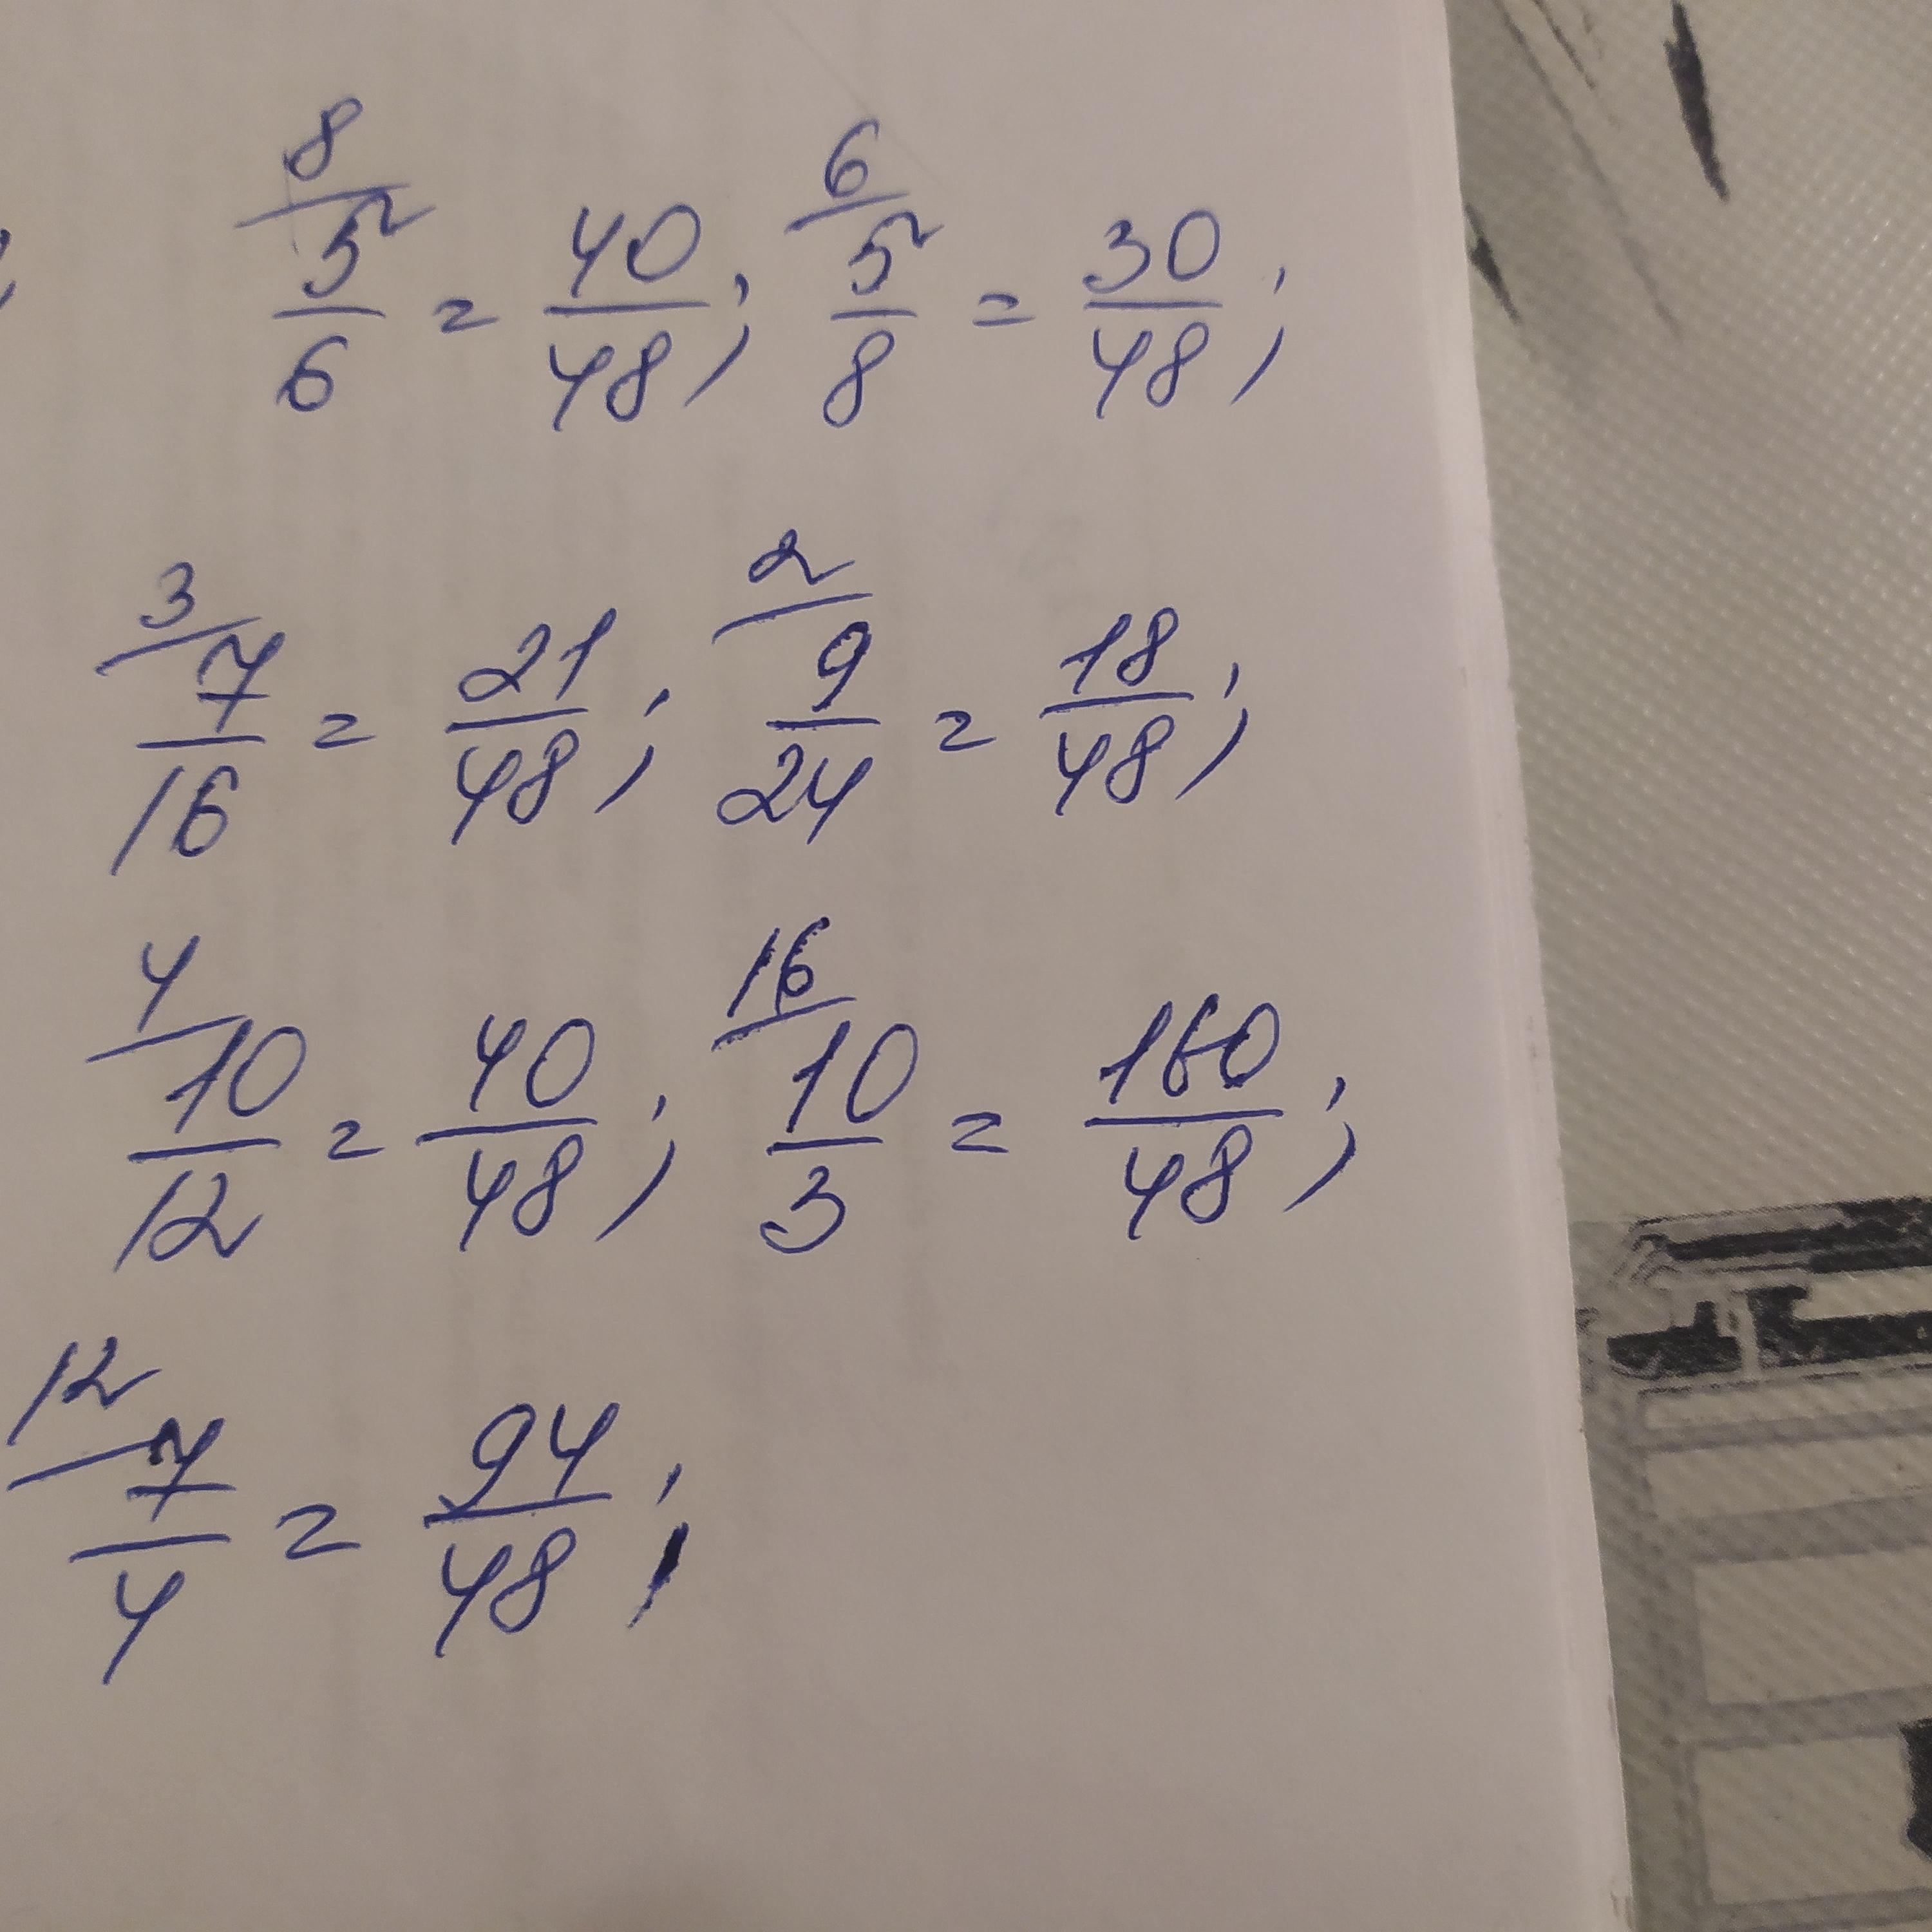 8/ 5/6 = 40/48; 6/ 5/8 = 30/48;
3/ 7/16 = 21/48; 2/ 9/24 = 18/48;
4/ 10/12 = 40/48; 16/ 10/3 = 160/48;
12/ 7/4 = 94/48;